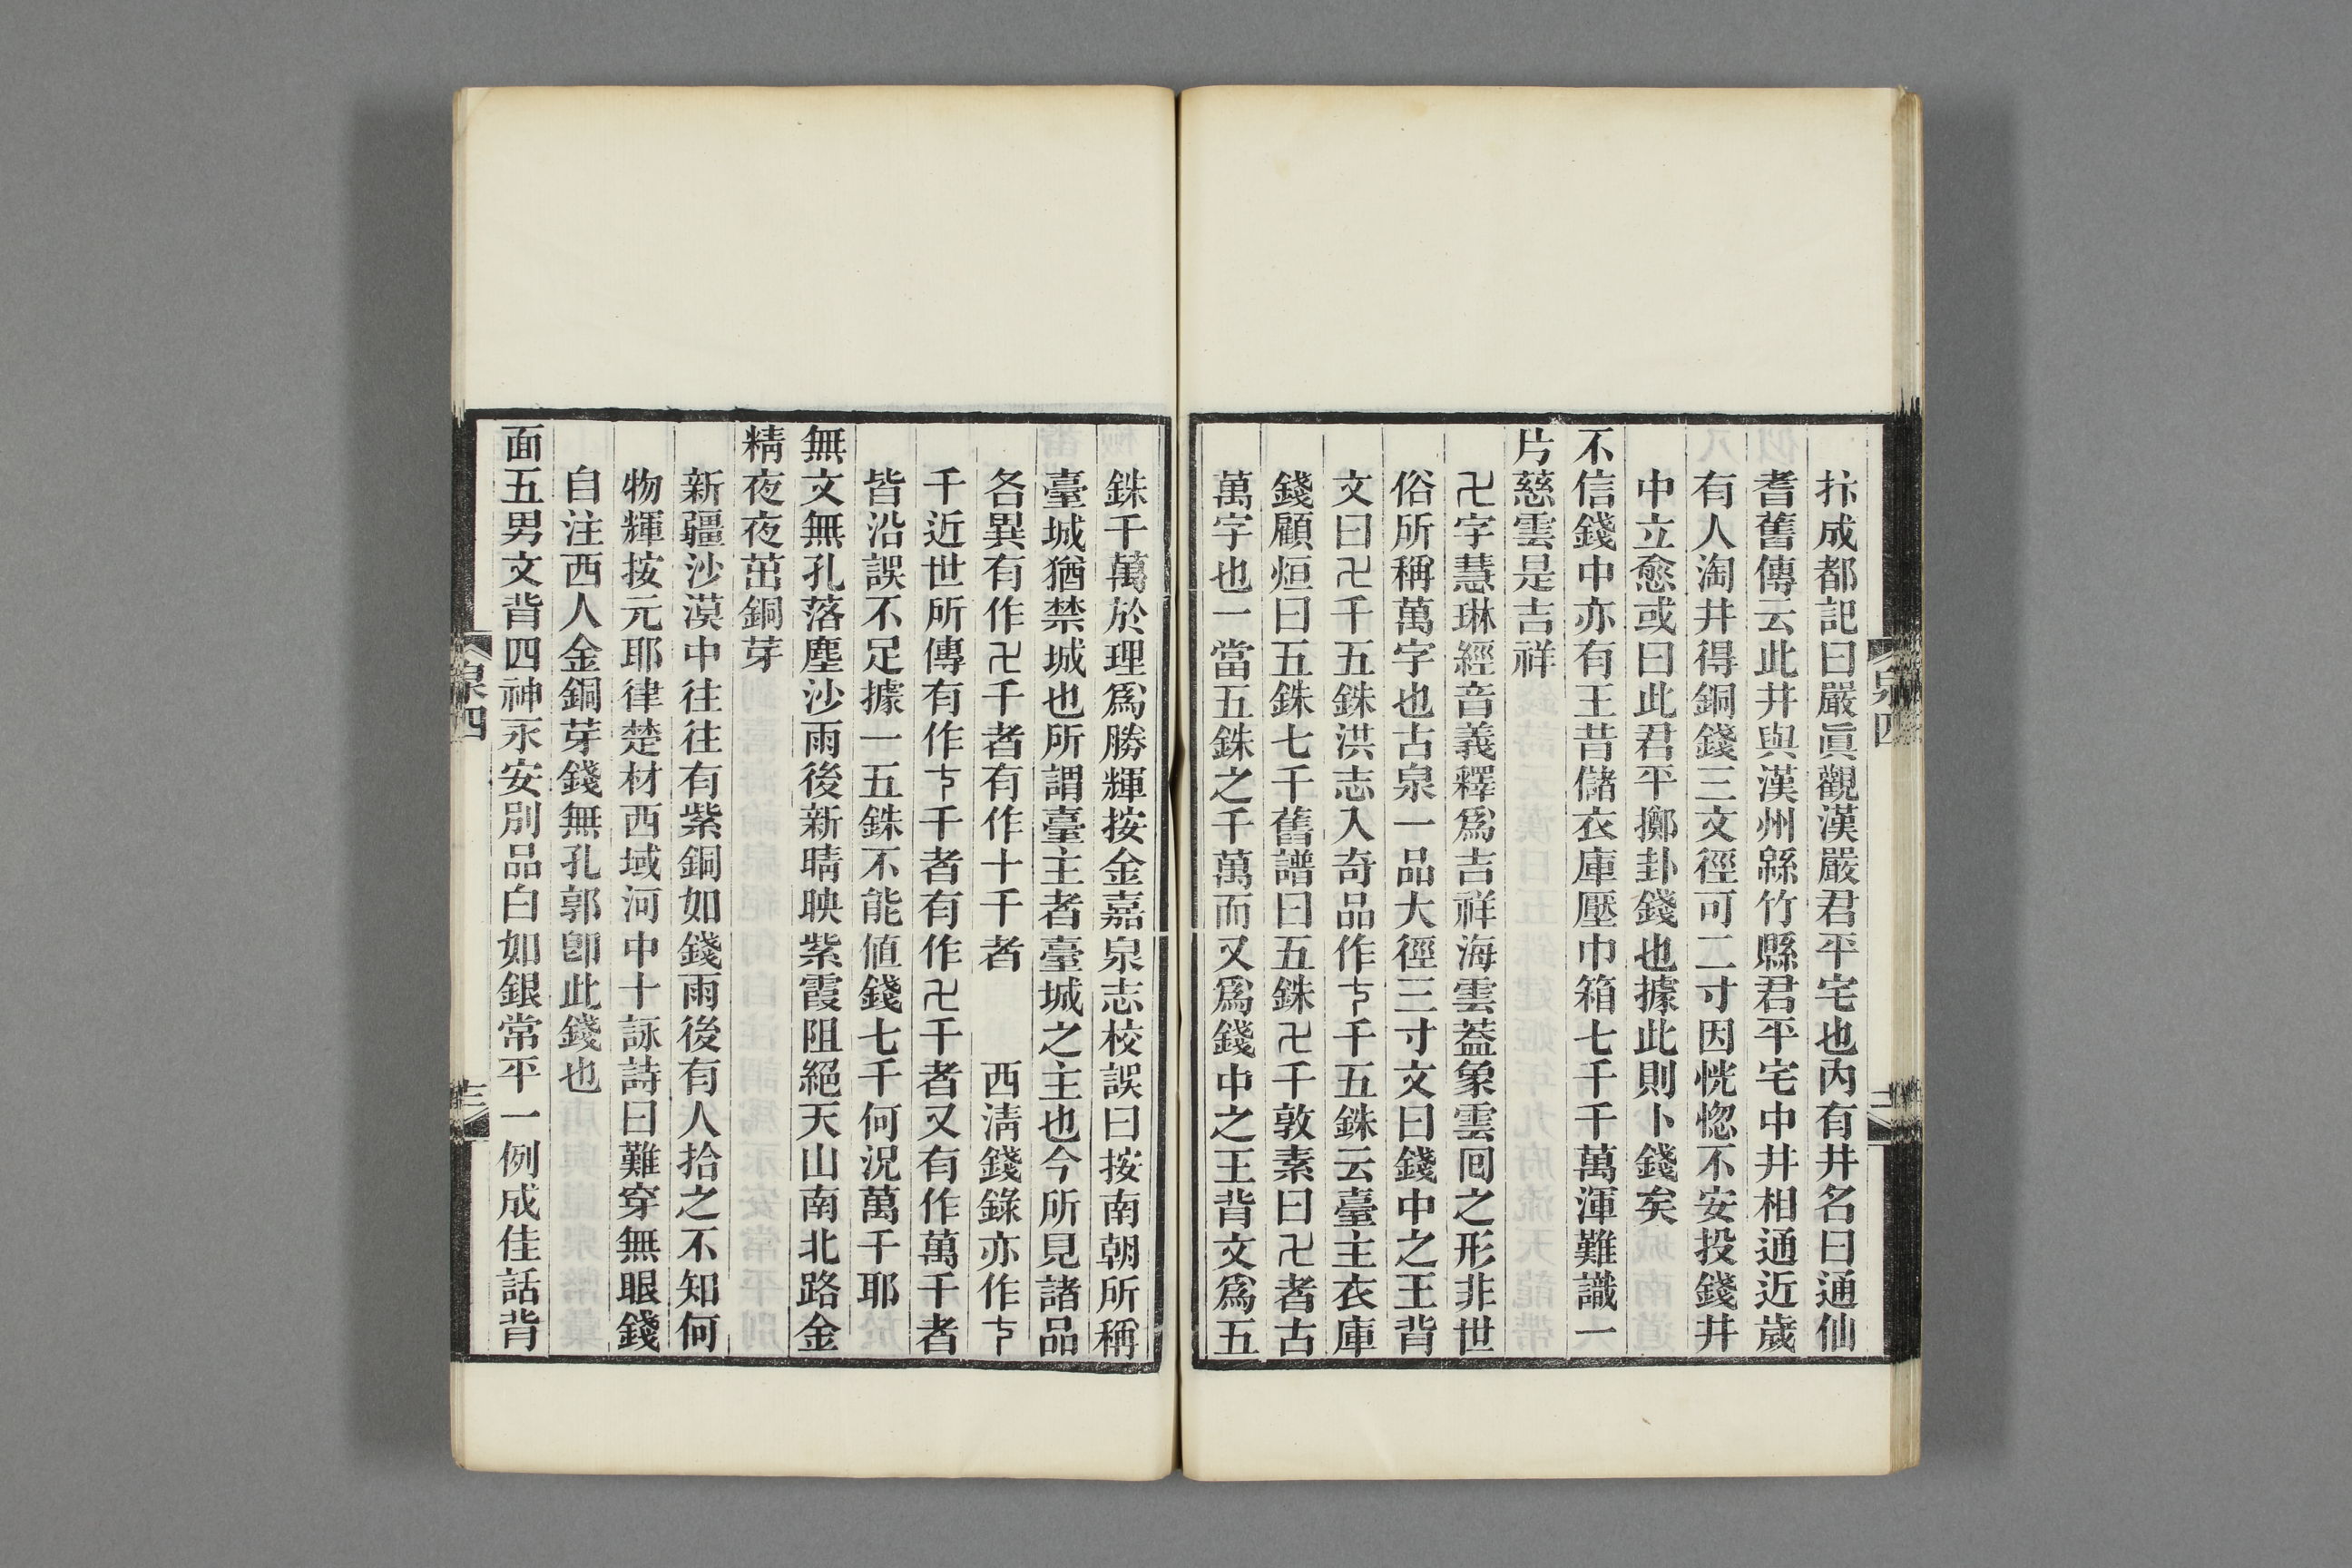 抃成都記曰嚴眞觀漢嚴君平宅也內有井名曰通仙
耆舊傳云此井與漢州緜竹縣君平宅中井相通近歲
有人淘井得銅錢三文徑可二寸因恍惚不安投錢井
中立愈或曰此君平擲卦錢也據此則卜錢矣
不信錢中亦有王昔儲衣庫壓巾箱七千千萬渾難識一
片慈雲是吉祥
卍字慧琳經音義釋爲吉祥海雲葢象雲囘之形非世
俗所稱萬字也古泉一品大徑三寸文曰錢中之王背
文曰卍千五銖洪志入奇品作千五銖云臺主衣庫
錢顧烜曰五銖七千舊譜曰五銖卍千敦素曰卍者古
萬字也一當五銖之千萬而又爲錢中之王背文爲五
銖千萬於理爲勝輝按金嘉泉志校誤曰按南朝所稱
臺城猶禁城也所謂臺主者臺城之主也今所見諸品
各異有作卍千者有作十千者　西淸錢錄亦作
千近世所傳有作千者有作卍千者又有作萬千者
皆沿誤不足據一五銖不能値錢七千何況萬千耶
無文無孔落塵沙雨後新晴映紫霞阻絕天山南北路金
精夜夜茁銅芽
新疆沙漠中往往有紫銅如錢雨後有人拾之不知何
物輝按元耶律楚材西域河中十詠詩曰難穿無眼錢
自注西人金銅芽錢無孔郭卽此錢也
面五男文背四神永安別品白如銀常平一例成佳話背
泉四
十三